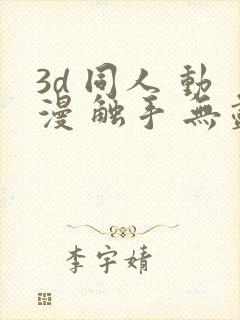 3d 同人 動
漫 触手 無
李宇婧